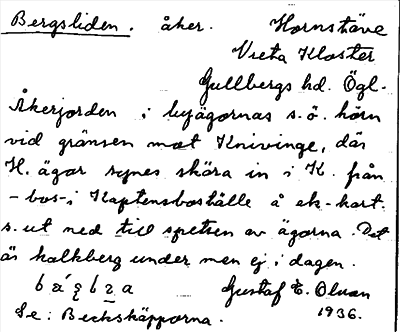 Bergsliden. åker. Hornstäve
Vreta Kloster
Gullbergs hd. Ögl.
Åkerjorden i byägornas s.ö. hörn
vid gränsen mot Knivinge, där
H. ägor synes skära in i K. från
-bos-i Kaptensboställe å ek-kart.
s. ut ned till spetsen av ägorna. Det
är kalkberg under men ej i dagen.
Gustaf E. Olsson
Se: Beckskäpporna. 1936.